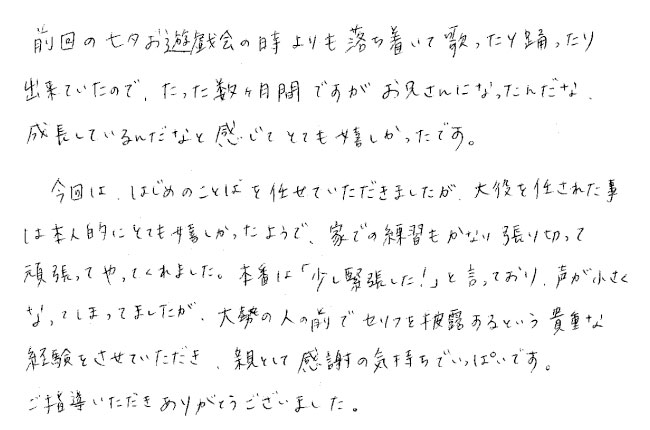 前回の七夕お遊戯会の時よりも落ち着いて歌ったり踊ったり
出来ていたので、たった数ヶ月間ですがお兄さんになったんだな、
成長しているんだなと感じてとても嬉しかったです。
今回は、はじめのことばを任せていただきましたが、大役を任された事
は本人的にとても嬉しかったようで、家での練習もかなり張り切って
頑張ってやってくれました。本番は「少し緊張した!」と言っており、声が小さく
なってしまってましたが、大勢の人の前でセリフを披露するという貴重な
経験をさせていただき、親として感謝の気持ちでいっぱいです。
ご指導いただきありがとうございました。